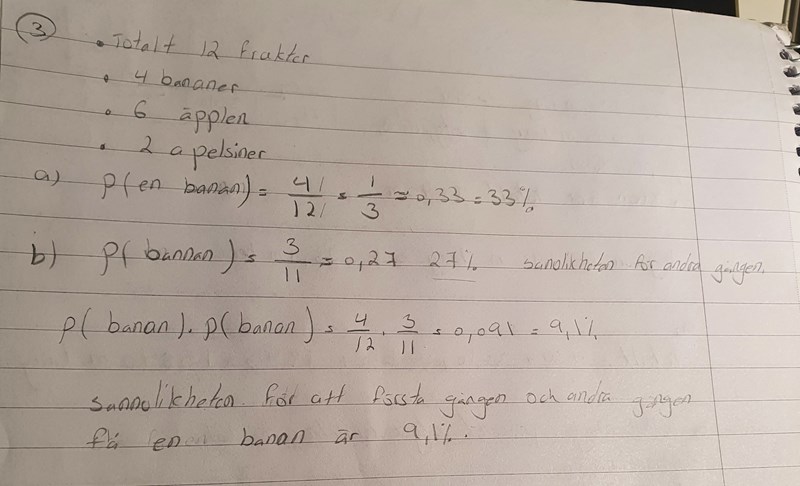 3
• Totalt 12 frukter
• 4 bananer
• 6 äpplen
• 2 apelsiner
a) P(en banan) = 4/12 = 1/3 ≈ 0,33 = 33%
b) P(bannan) = 3/11 ≈ 0,27 27% sanolikheten för andra gången.
P(banan). P(banan) = 4/12 · 3/11 = 0,091 = 9,1%
Sannolikheten för att första gången och andra gången
få en banan är 9,1%.